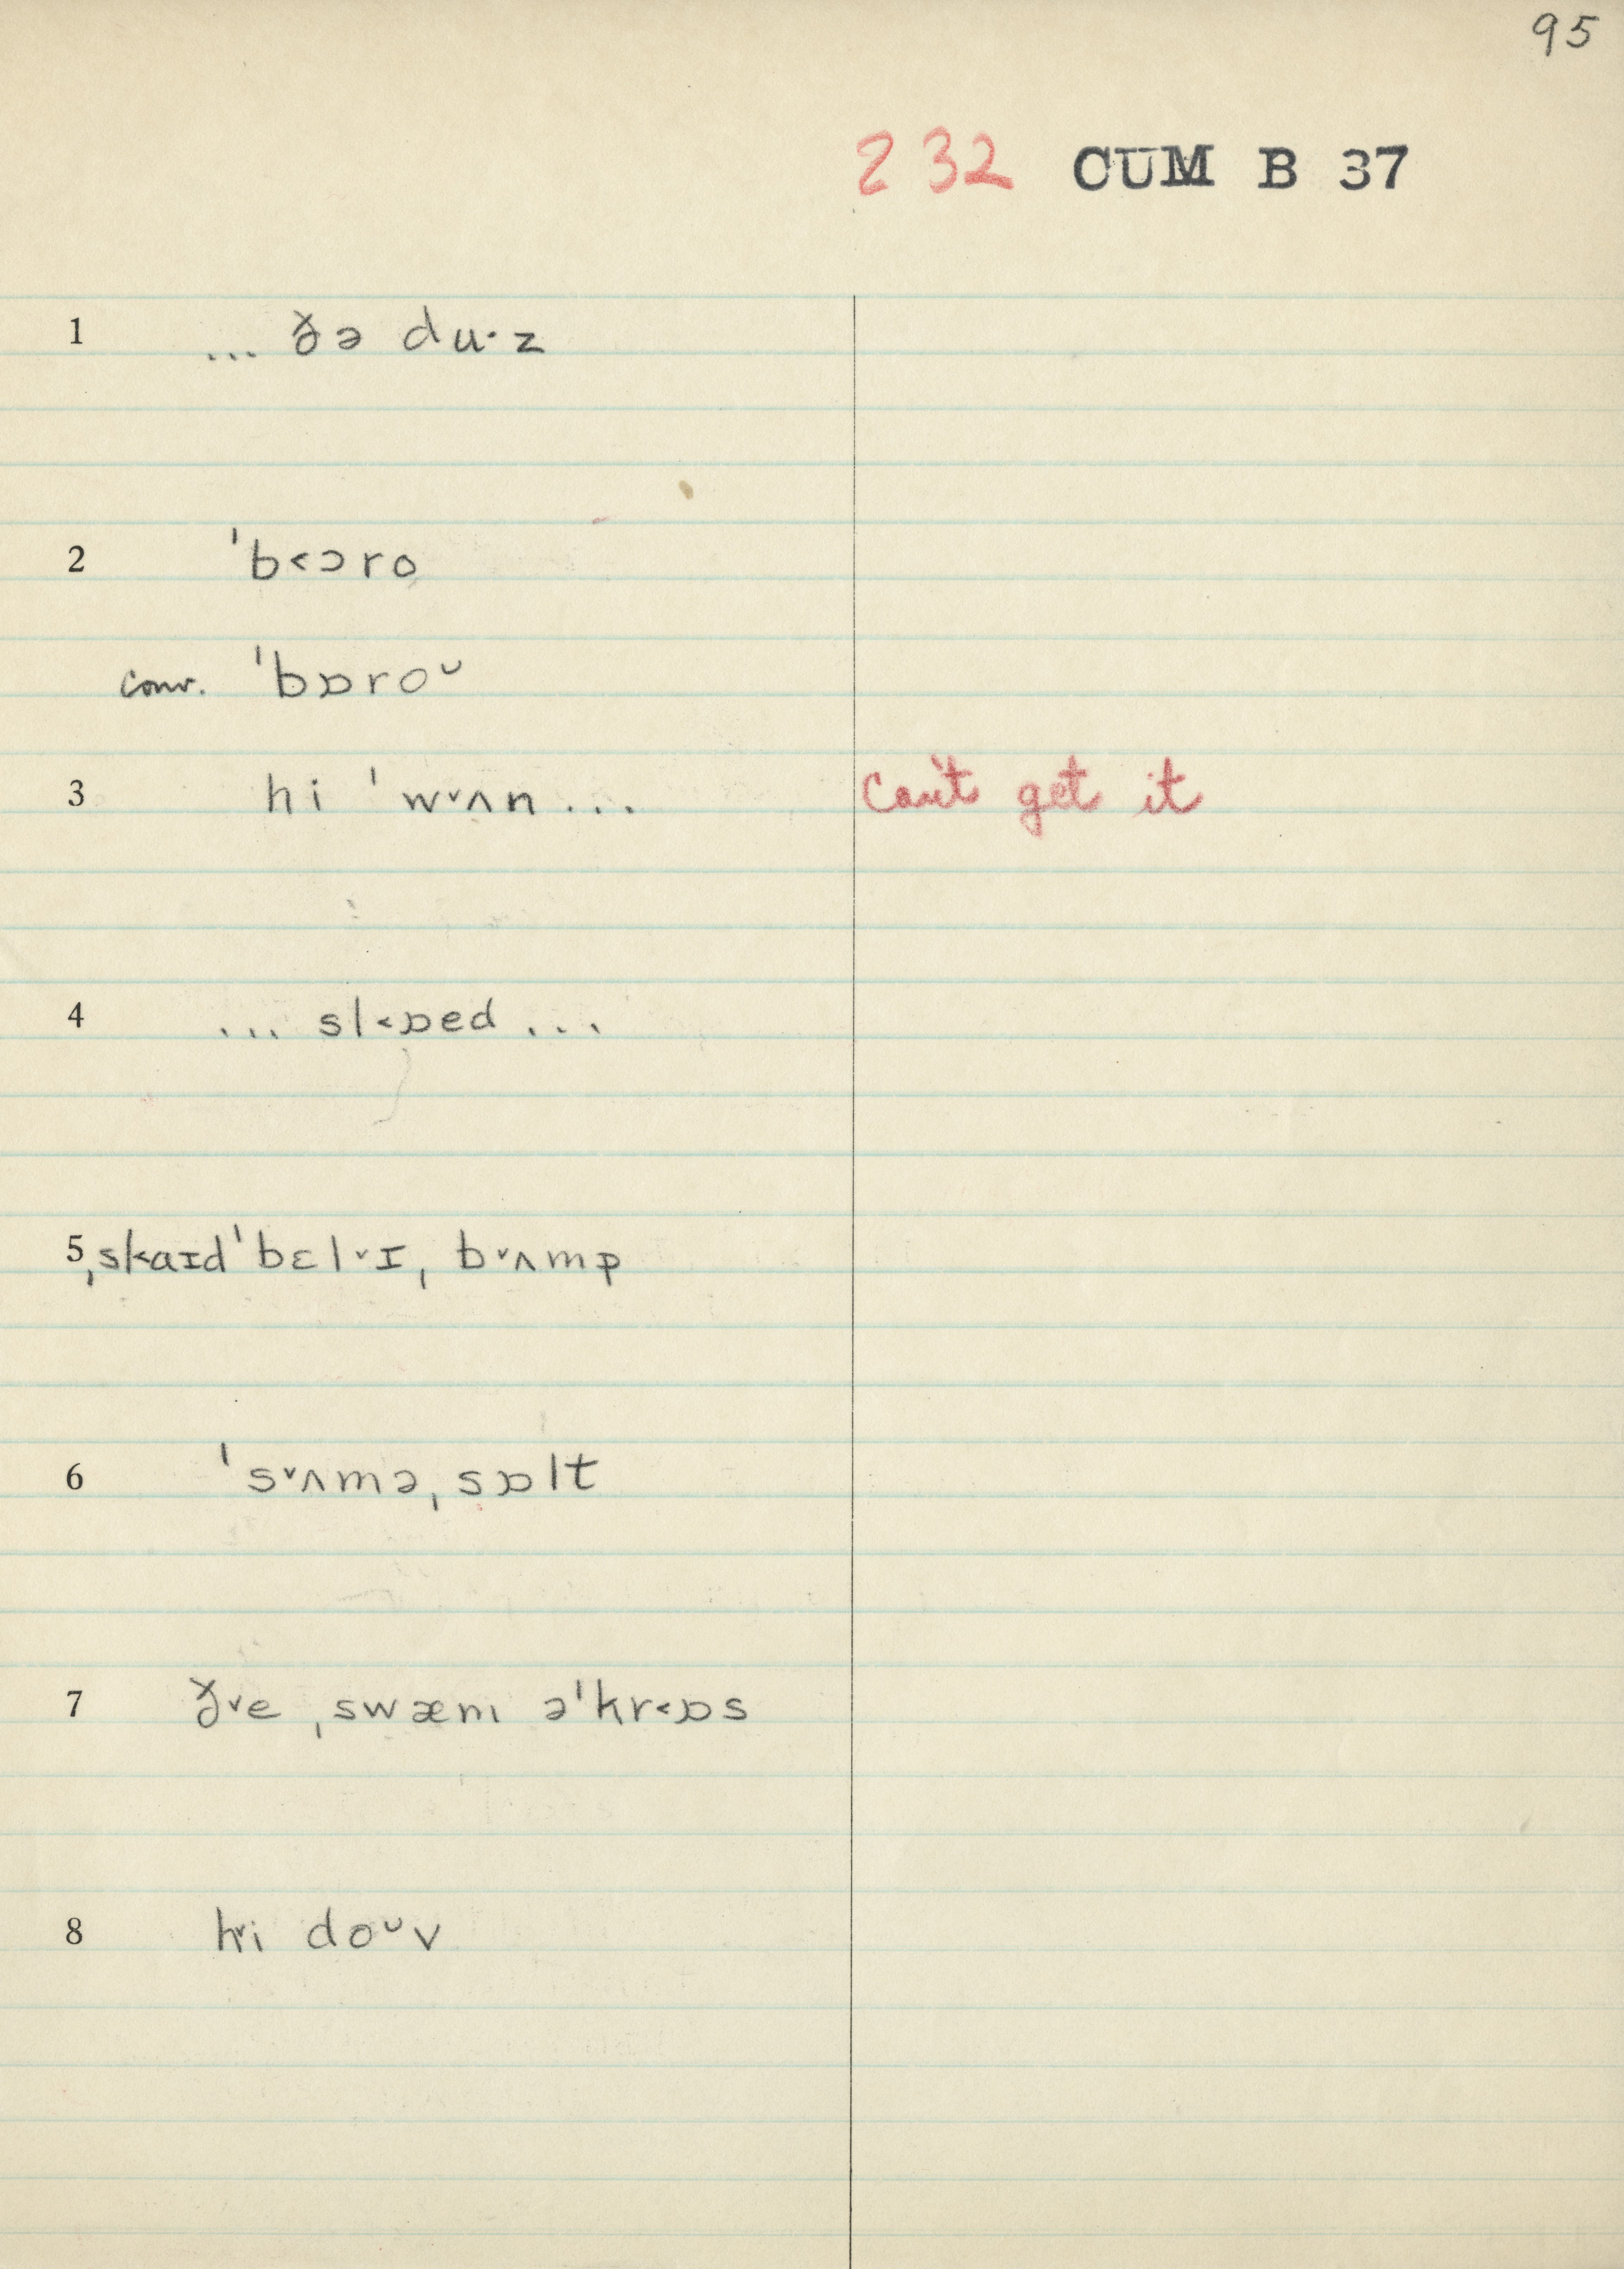 95
232 CUM B 37
1 ... ðə du·z
2 ˈb˂ɔro
conv. ˈbɒroᵕ
3 hi ˈw˅ʌn... Can't get it
4 ... sl˂ɒed ...
5 ˌskaɪdˈbɛl˅ɪˌ b˅ʌmp
6 ˈs˅ʌməˌ sɒlt
7 ð˅e ˌswæm əˈkr˂ɒs
8 h˅i doᵕv